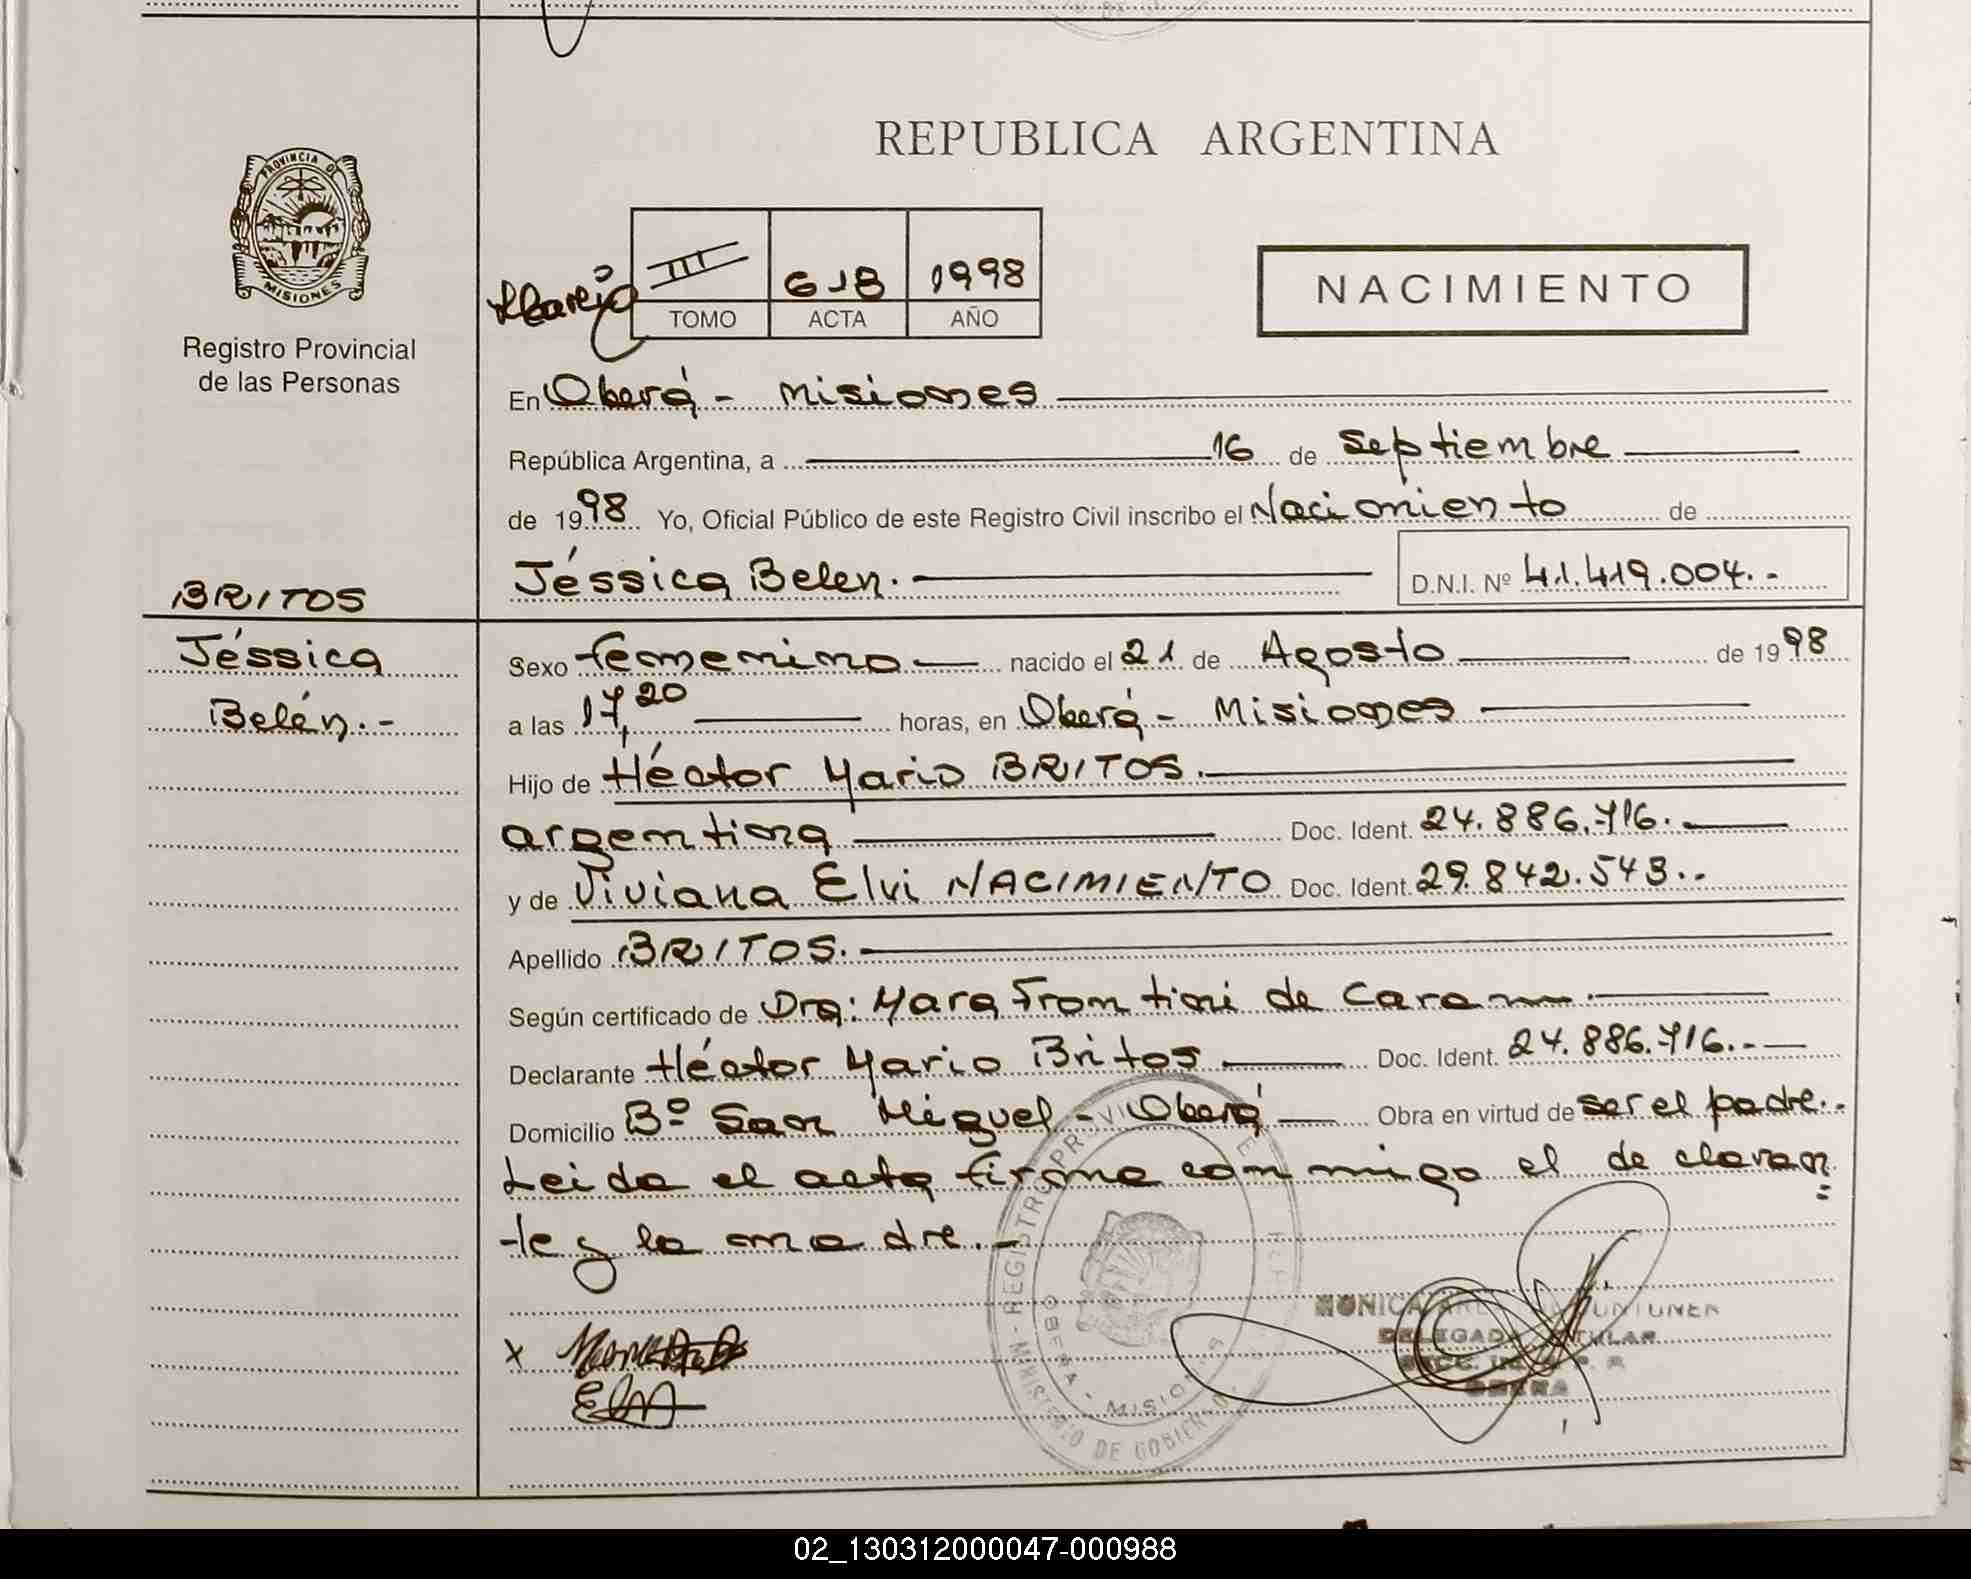 REPUBLICA ARGENTINA
PROVINCIA DE
MISIONES
Registro Provincial
de las Personas
III 618 1998
TOMO ACTA AÑO
NACIMIENTO
En Oberá - Misiones
República Argentina, a 16 de Septiembre
de 1998 Yo, Oficial Público de este Registro Civil inscribo el Nacimiento de
Jéssica Belen.- D.N.I. Nº 41.419.004.-
BRITOS
Jéssica
Belén.-
Sexo femenino nacido el 21 de Agosto de 1998
a las 17,20 horas, en Oberá - Misiones
Hijo de Héctor Mario BRITOS.
argentina Doc. Ident. 24.886.716.
y de Viviana Elvi NACIMIENTO Doc. Ident. 29.842.543.-
Apellido BRITOS.
Según certificado de Dra: Mara Frontini de Caram.
Declarante Héctor Mario Britos Doc. Ident. 24.886.716.-
Domicilio Bº San Miguel - Oberá Obra en virtud de ser el padre.-
Leida el acta firma conmigo el declaran
te y la madre.-
REGISTRO PROVINCIAL
OBERA - MISIONES
MINISTERIO DE GOBIERNO
MONICA
DELEGADA TITULAR
OBERA
x
02_130312000047-000988